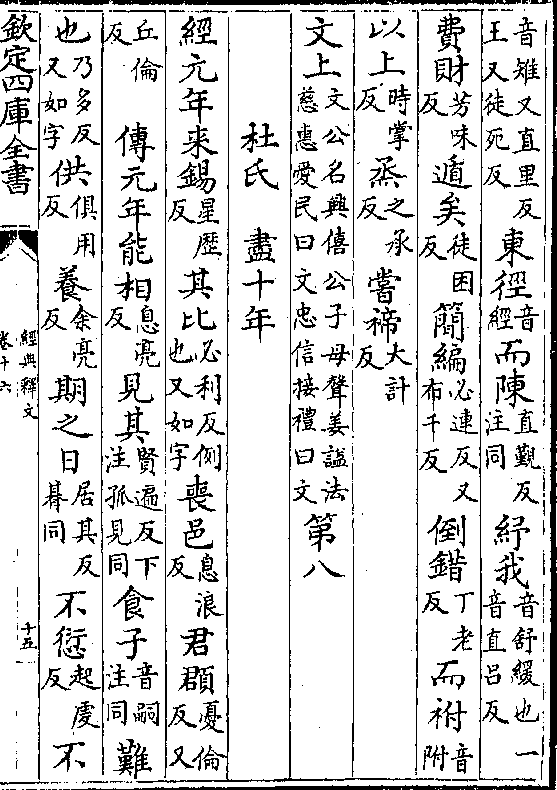 音雉又直里反王又徒死反東徑音經而陳直覲反注同紓我音舒緩也一音直呂反
費財芳味反遁矣徒困反簡編必連反又布千反倒錯丁老反而祔音附
以上時掌反烝之承反嘗禘大計反
文上文公名興僖公子母聲姜謚法慈惠愛民曰文忠信接禮曰文第八
杜氏 盡十年
經元年来錫星歷反其比必利反例也又如字喪邑息浪反君頵憂倫反又
丘倫反傳元年能相息亮反見其賢遍反下注孤見同食子音嗣注同難
也乃多反又如字供俱用反養余亮反期之日居其反朞同不愆起虔反不
欽定四庫全書
經典釋文
卷十六
十五